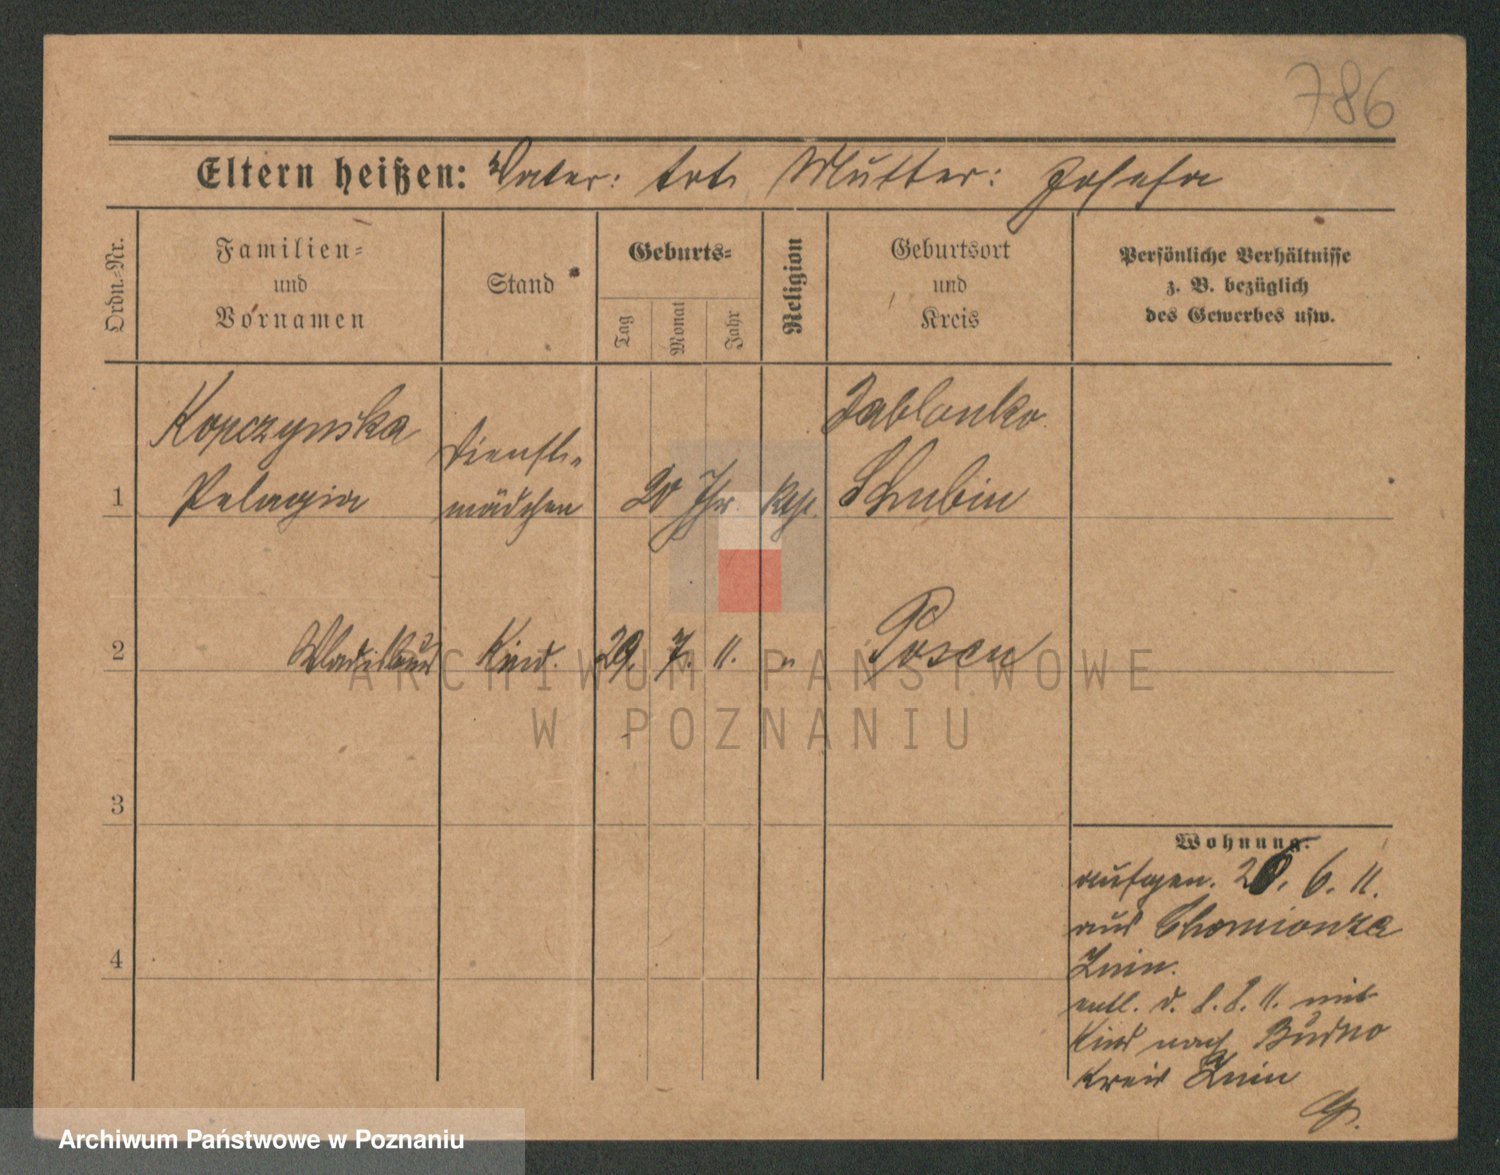 786
Eltern heißen: Vater: tot. Mutter: Josefa
Ordn.=Nr.
Familien=
und
Vornamen
Stand
Geburts=
Tag
Monat
Jahr
Religion
Geburtsort
und
Kreis
Persönliche Verhältnisse
z. B. bezüglich
des Gewerbes usw.
1
Kopczynska
Pelagia
Dienst=
mädchen
20 Jhr.
Jablonko
Schubin
2
Wladislaus
Kind.
29. 7. 11.
"
Posen
3
4
Wohnung:
aufgen. 26. 6. 11.
aus Chomionza
Znin.
entl. d. 8. 8. 11. mit
Kind nach
Kreis Znin
ARCHIWUM PAŃSTWOWE
W POZNANIU
Archiwum Państwowe w Poznaniu